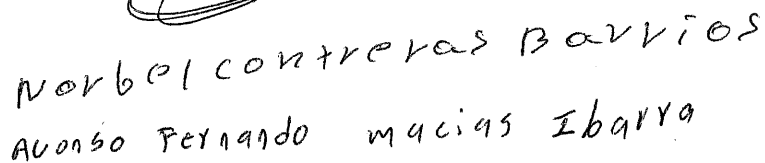 Norbel contreras Barrios
Alonso Fernando macias Ibarra